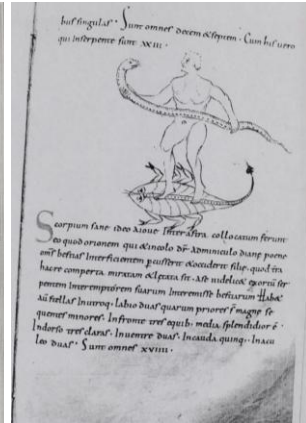 bus singulas · Sunt omnes decem & septem · Cum his vero
qui inserpente sunt XXIII ·
Scorpium sane ideo a ioue inter astra collocatum ferunt
eo quod orionem qui & incolo dr̄ adminiculo diane poene
om̄s bestias interficientem percusserit & occiderit
hac re comperta miratam &
pentem interemptorem suarum interemisse bestiarum · Hab&
aū stellas in utroq; labio duas quarum priores s̄ magne se
quentes minores · In fronte tres equib; media splendidior ē ·
In dorso tres claras · In uentre duas · In cauda quinq; · In acu
leo duas · Sunt omnes XVIIII ·